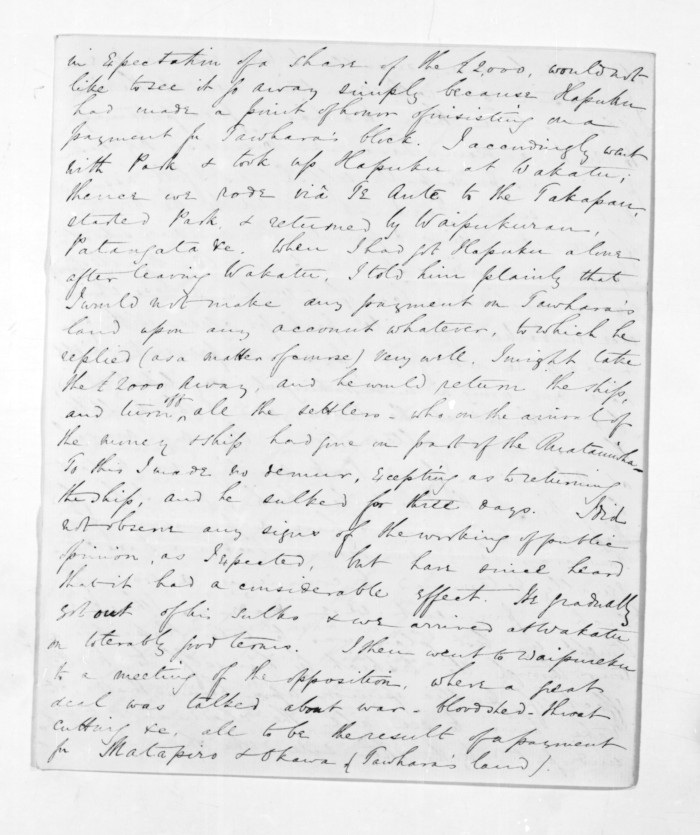 in expectation of a share of the £2,000, would not
like to see it go away simply because Hapuku
had made a point of honor of insisting on a
payment for Tawhara's block. I accordingly went
with Park & took up Hapuku at Wakatu;
thence we rode viâ Te Aute to the Takapau,
started Park & returned by Waipukurau,
Patangata &c. When I had got Hapuku alone
after leaving Wakatu, I told him plainly that
I would not make any payment on Tawhara's
land upon any account whatever, to which he
replied (as a matter of course) very well, I might take
the £2000 away, and he would return the ship,
and turn off all the settlers - who on the arrival of
the money & ship had gone on part of the Ruataniwha -
To this I made no demur, excepting as to returning
the ship, and he sulked for three days. I did
not observe any signs of the working of public
opinion, as I expected, but have since heard
that it had a considerable effect. He gradually
got out of his sulks & we arrived at Wakatu
on tolerably good terms. I then went to Waipureku
to a meeting of the opposition, where a great
deal was talked about war - bloodshed - throat
cutting &c. all to be the result of a payment
for Matapiro & Okawa (Tawhara's land).